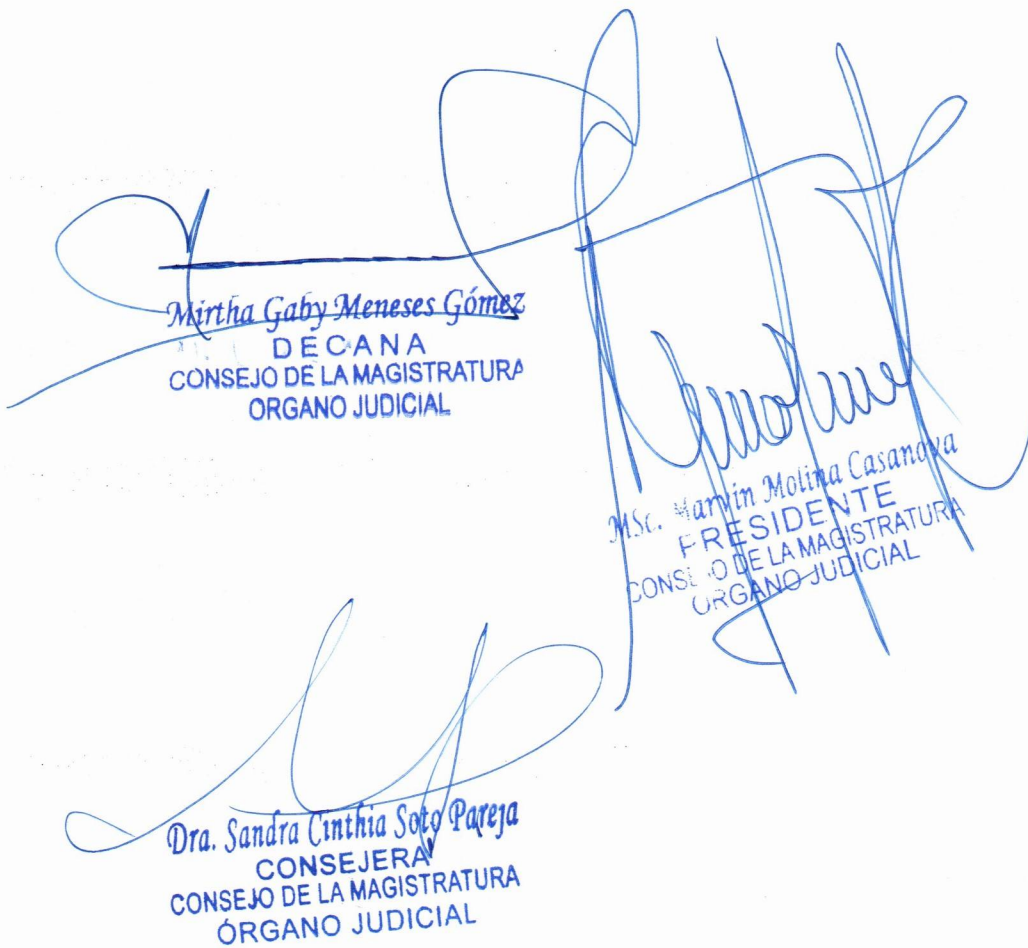 Mirtha Gaby Meneses Gómez
DECANA
CONSEJO DE LA MAGISTRATURA
ORGANO JUDICIAL
MSc. Marvin Molina Casanova
PRESIDENTE
CONSEJO DE LA MAGISTRATURA
ORGANO JUDICIAL
Dra. Sandra Cinthia Soto Pareja
CONSEJERA
CONSEJO DE LA MAGISTRATURA
ÓRGANO JUDICIAL